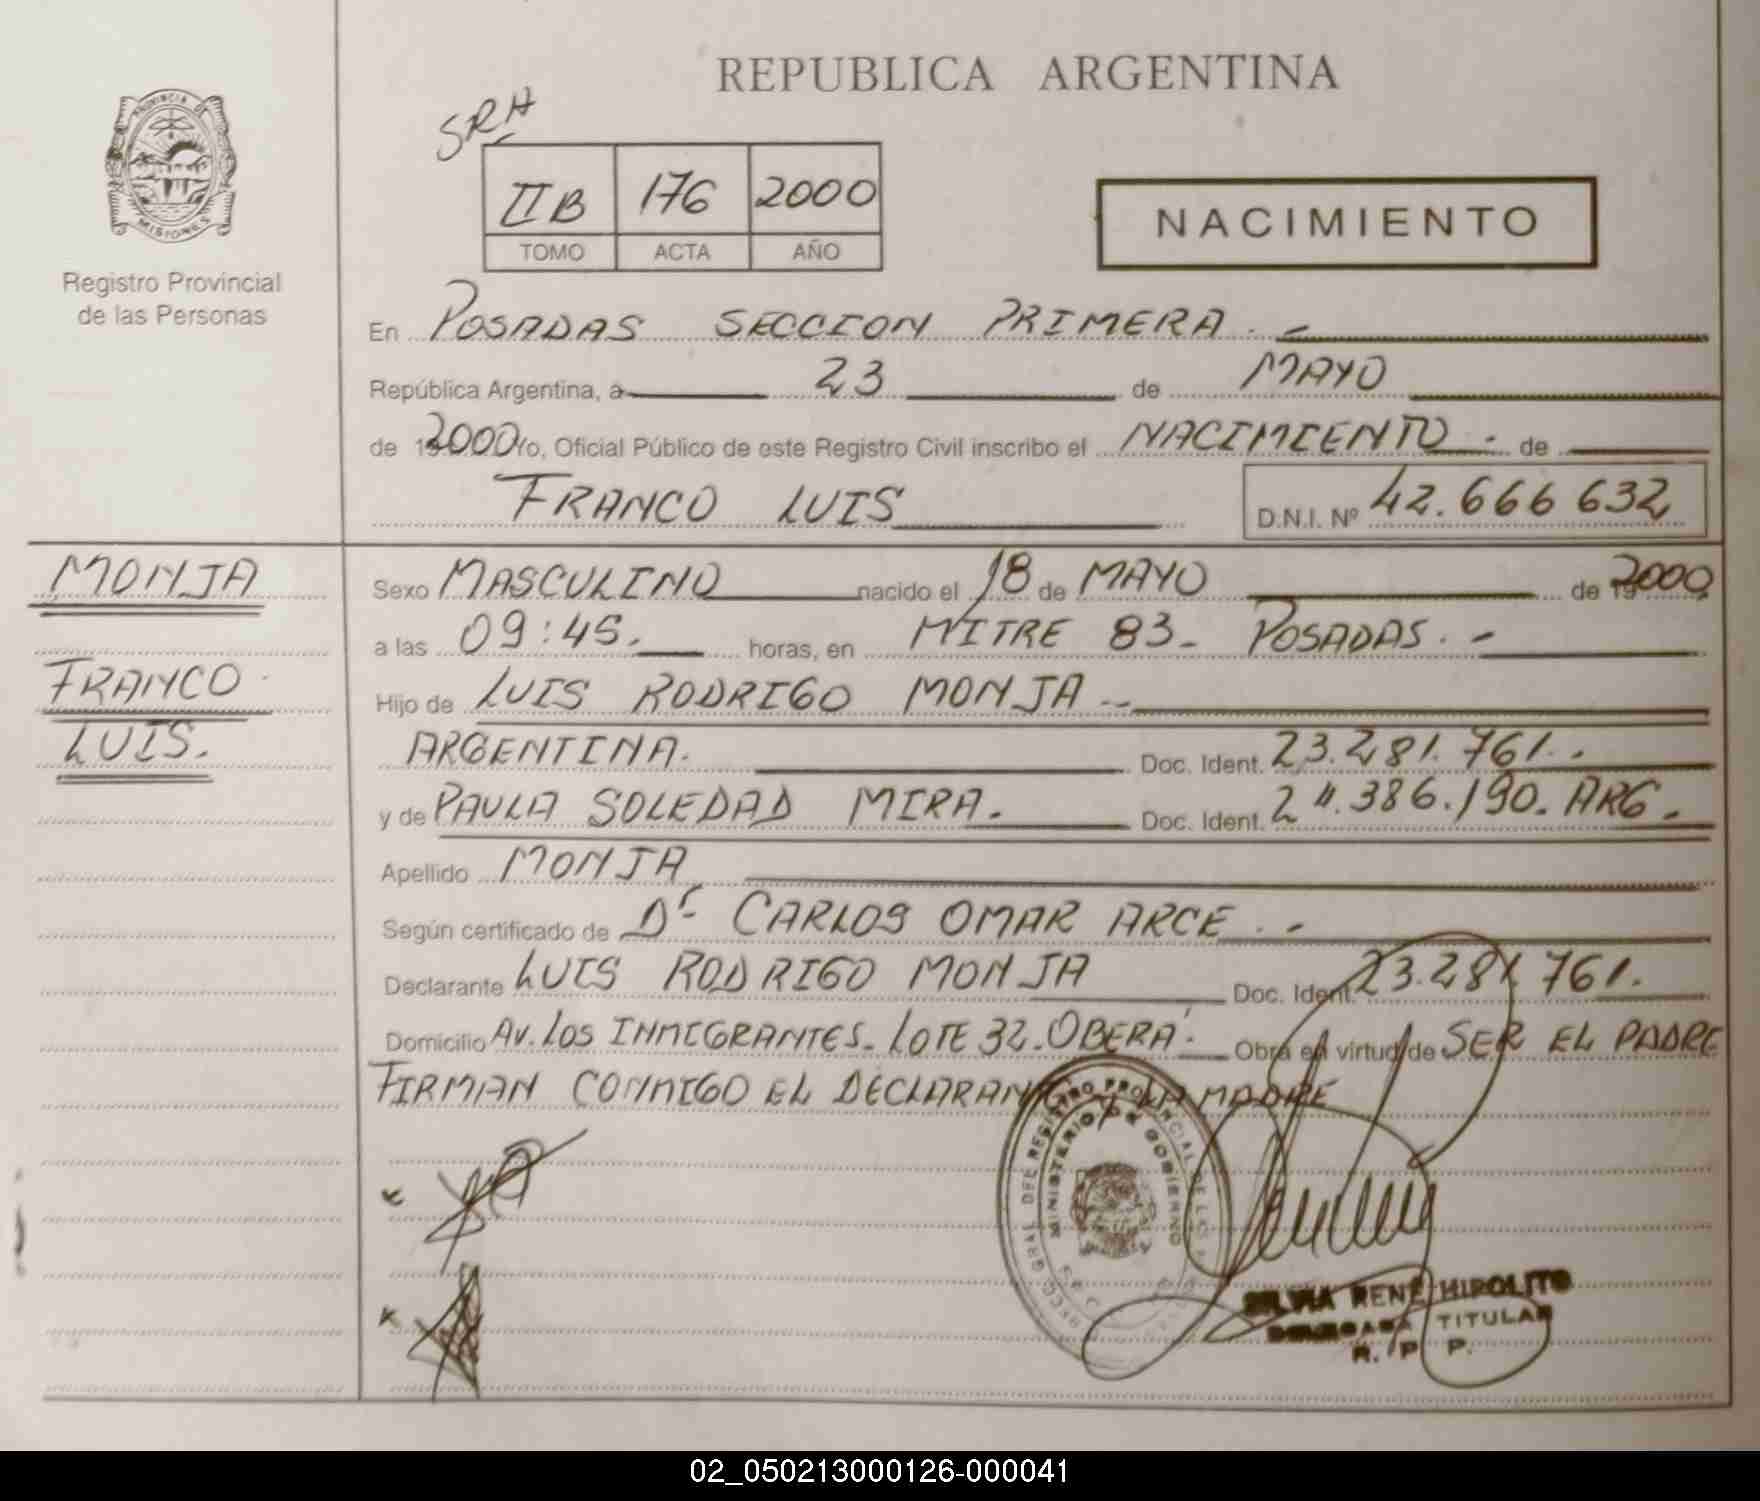 REPUBLICA ARGENTINA
SRH
II B 176 2000
TOMO ACTA AÑO
NACIMIENTO
PROVINCIA DE
MISIONES
Registro Provincial
de las Personas
En POSADAS SECCION PRIMERA. -
República Argentina, a 23 de MAYO
de 2000 Yo, Oficial Público de este Registro Civil inscribo el NACIMIENTO. de
FRANCO LUIS
D.N.I. Nº 42.666 632
MONJA
FRANCO
LUIS.
Sexo MASCULINO nacido el 18 de MAYO de 2000
a las 09:45. horas, en MITRE 83- POSADAS. -
Hijo de LUIS RODRIGO MONJA --
ARGENTINA. Doc. Ident. 23.281.761..
y de PAULA SOLEDAD MIRA. Doc. Ident. 24.386.190. ARG.
Apellido MONJA
Según certificado de Dr CARLOS OMAR ARCE. -
Declarante LUIS RODRIGO MONJA Doc. Ident. 23.281.761.
Domicilio AV. LOS INMIGRANTES. LOTE 32. OBERÁ. Obra en virtud de SER EL PADRE
FIRMAN CONMIGO EL DECLARANTE Y LA MADRE
MINISTERIO DE GOBIERNO
SILVIA RENE HIPOLITO
DELEGADA TITULAR
R. P. P.
02_050213000126-000041